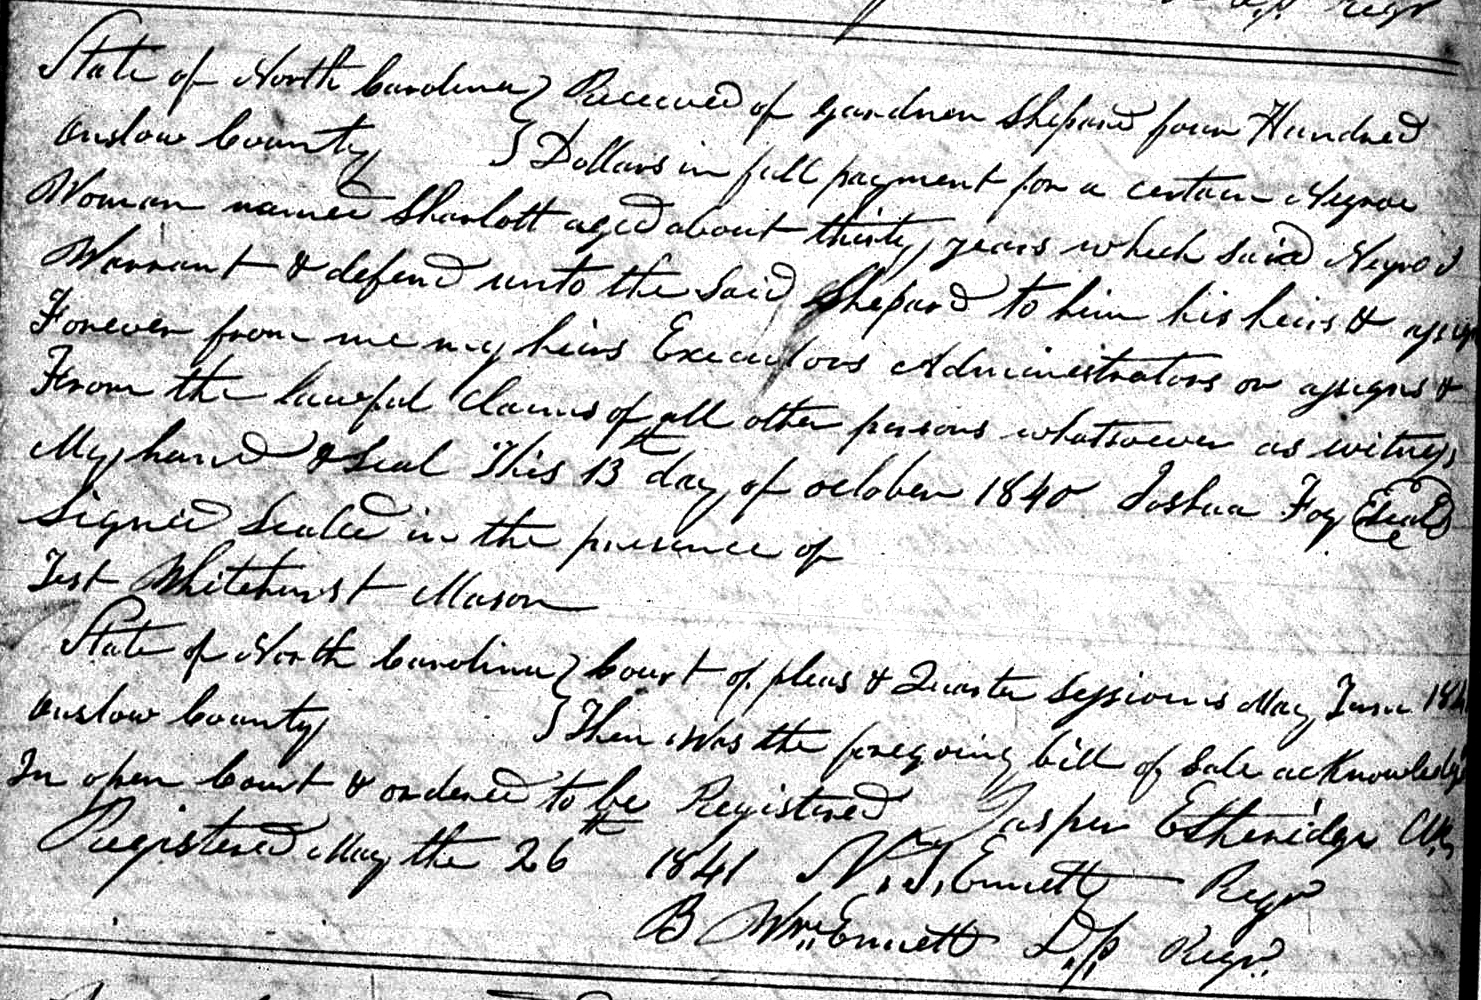 State of North Carolina } Received of Gardner Shepard four Hundred
Onslow County } Dollars in full payment for a certain Negroe
Woman named Sharlott aged about thirty years which said Negro I
Warrant & defend unto the said Shepard to him his heirs & assigns
Forever from me my heirs Executors Administrators or assigns &
From the lawful Claims of all other persons whatsoever as witness
My hand & Seal This 13th day of october 1840 Joshua Foy (Seal)
Signed Sealed in the presence of
Test Whitehurst Mason
State of North Carolina } Court of pleas & Quarter Sessions May Term 184
Onslow County } Then was the foregoing bill of Sale acknowledgd
In open Court & ordered to be Registered Jasper Etheridge Clk
Registered May the 26th 1841 N. Ennett Regr
B Wm Ennett D.p. Regr.